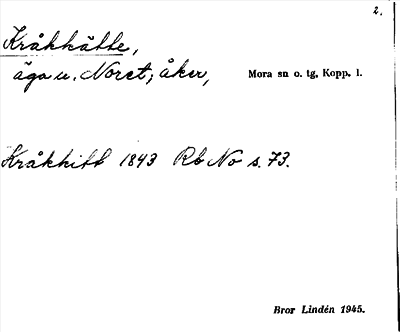 2.
Kråkhätte,
äga u. Noret; åker,
Mora sn o. tg, Kopp. l.
Kråkhitt 1843 Rb No s. 73.
Bror Lindén 1945.